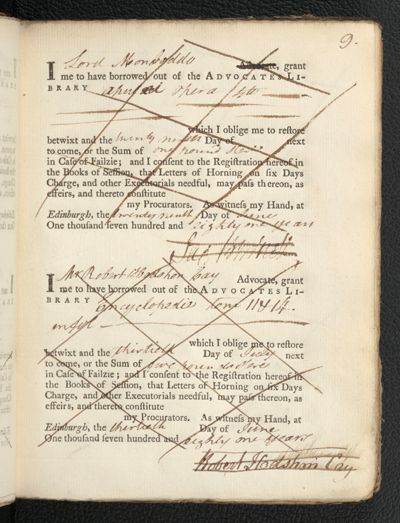 9.
I Lord Monboddo Advocate, grant
me to have borrowed out of the ADVOCATES LI-
BRARY opera
which I oblige me to reſtore
betwixt and the twenty ninth Day of next
to come, or the Sum of one pound
in Caſe of Failzie; and I conſent to the Regiſtration hereof in
the Books of Seſſion, that Letters of Horning on ſix Days
Charge, and other Executorials needful, may paſs thereon, as
effeirs, and thereto conſtitute
my Procurators. As witneſs my Hand, at
Edinburgh, the twenty ninth Day of June
One thouſand ſeven hundred and eighty one years
I Mr Robert Hodshon Cay Advocate, grant
me to have borrowed out of the ADVOCATES LI-
BRARY Encyclopedie tom 11 & 14.
which I oblige me to reſtore
betwixt and the thirtieth Day of July next
to come, or the Sum of
in Caſe of Failzie; and I conſent to the Regiſtration hereof in
the Books of Seſſion, that Letters of Horning on ſix Days
Charge, and other Executorials needful, may paſs thereon, as
effeirs, and thereto conſtitute
my Procurators. As witneſs my Hand, at
Edinburgh, the thirtieth Day of June
One thouſand ſeven hundred and eighty one years
Robert Hodshon Cay